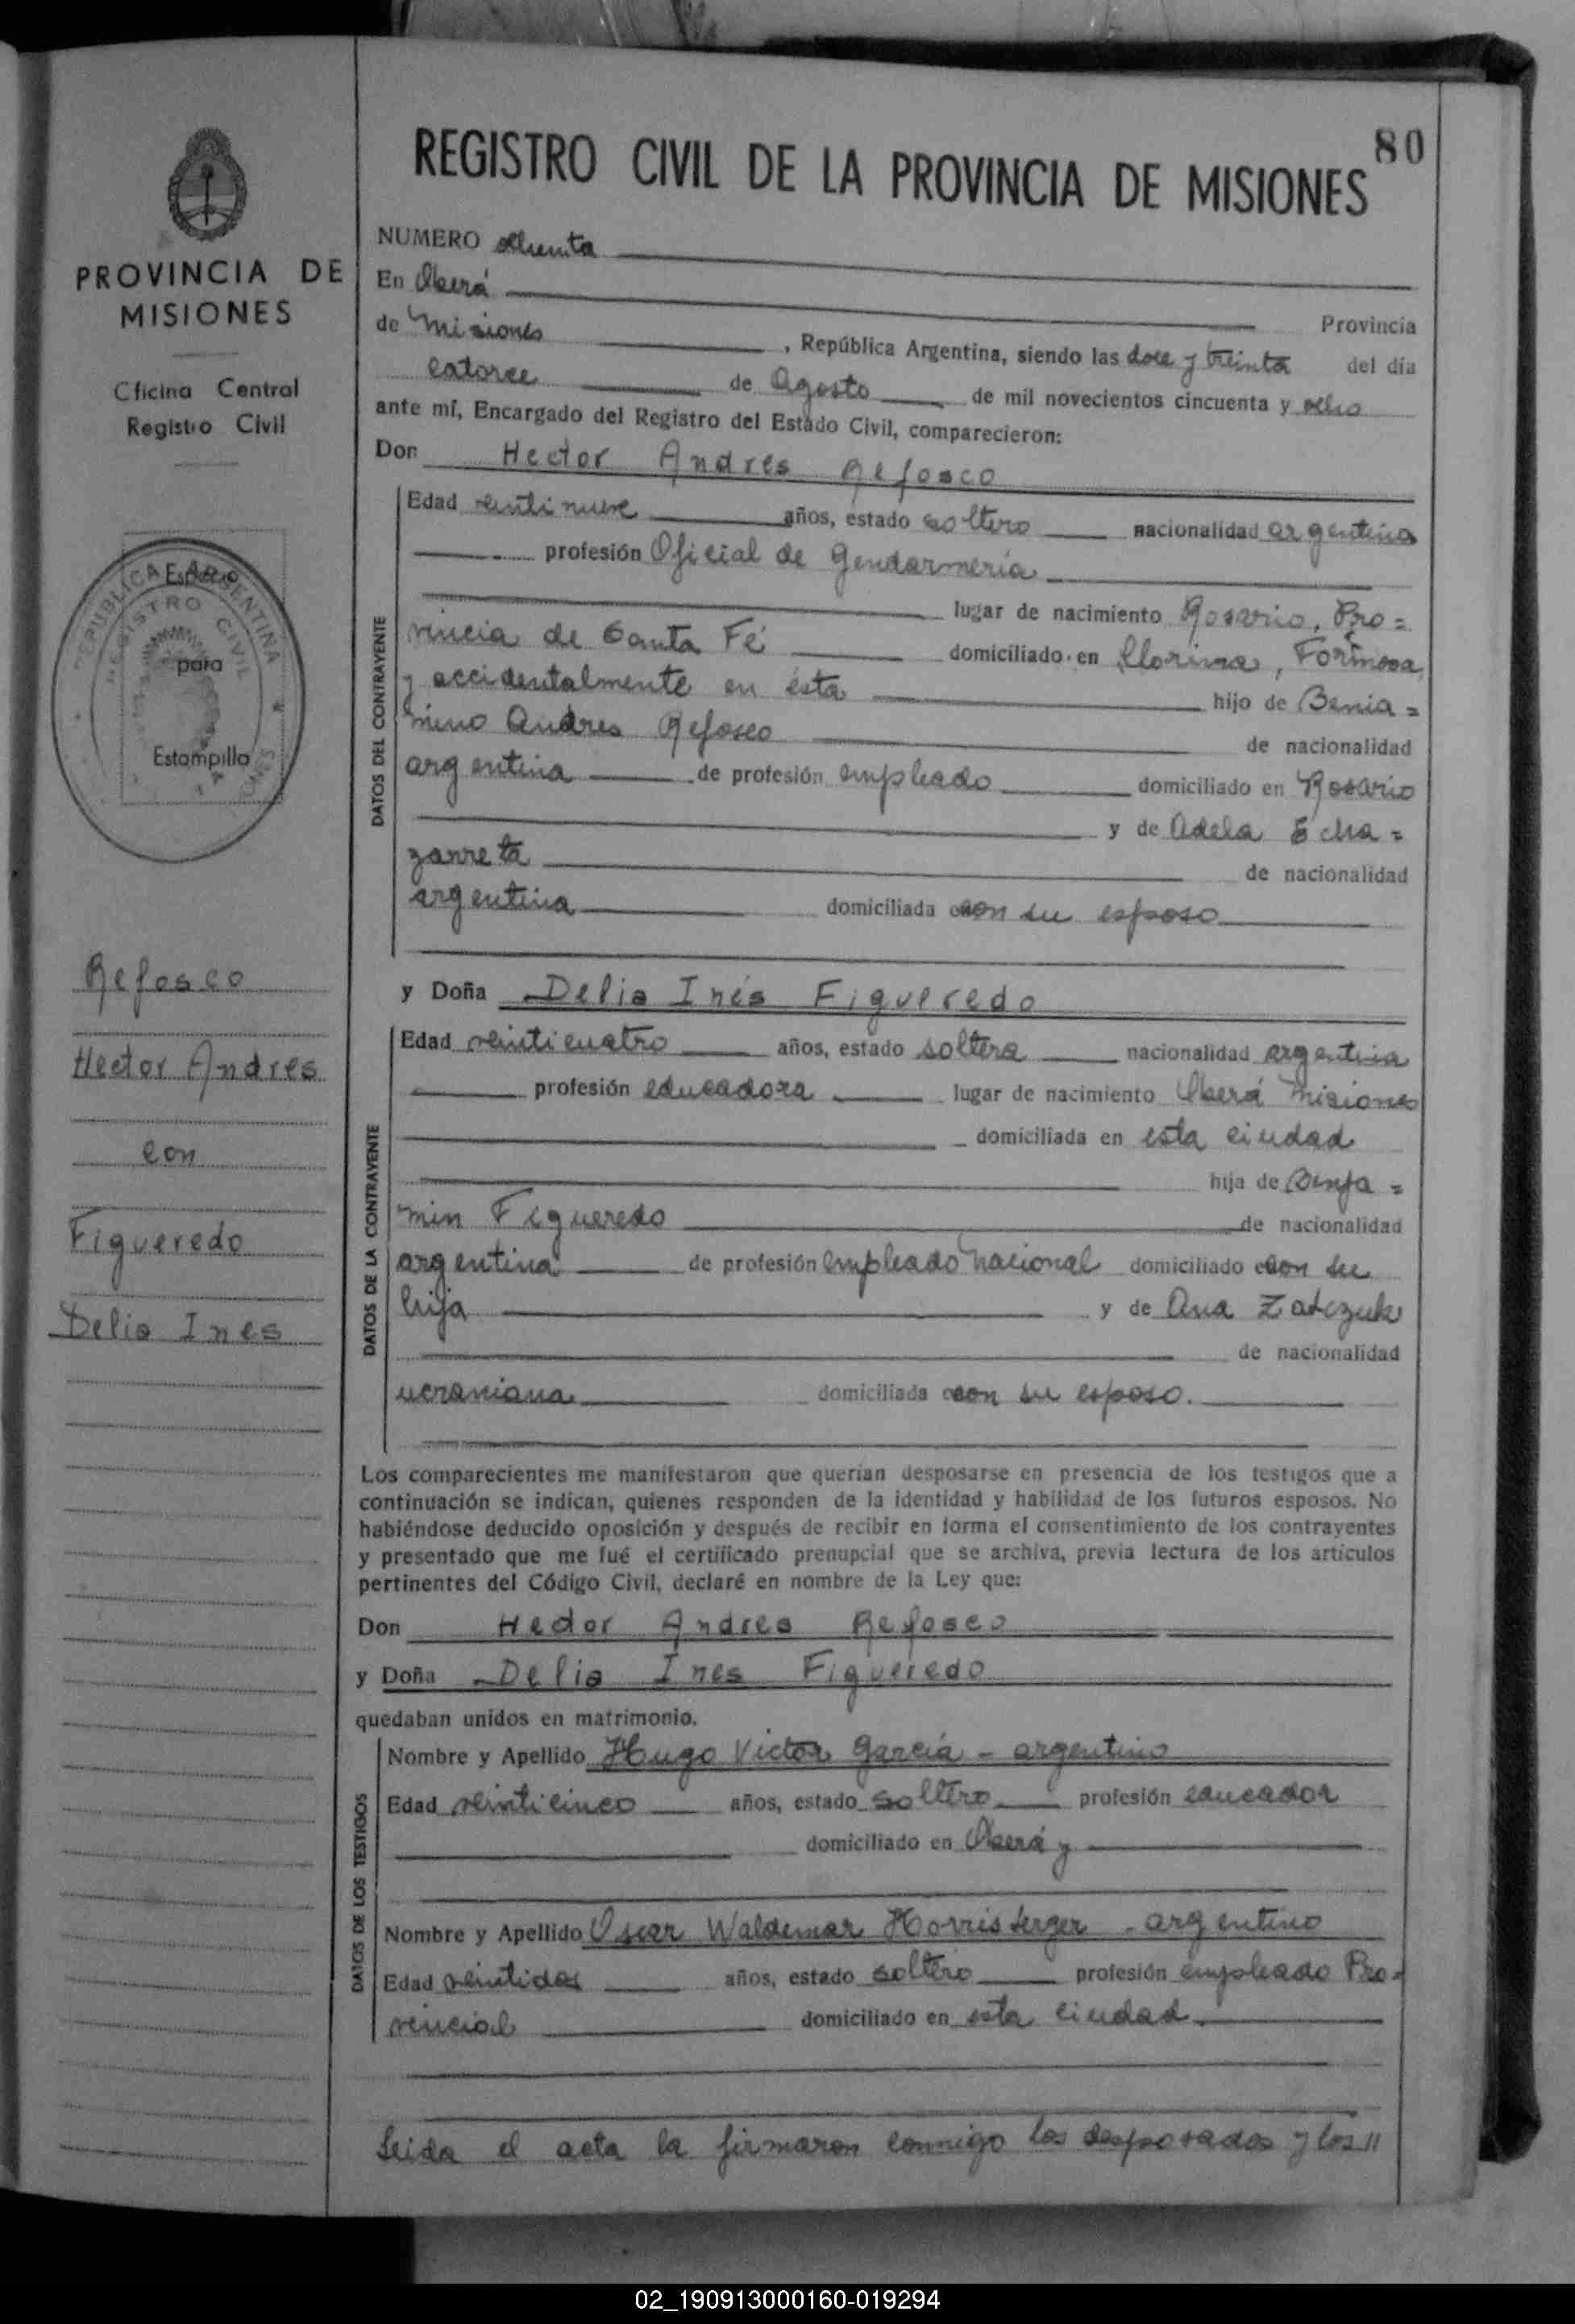 80
REGISTRO CIVIL DE LA PROVINCIA DE MISIONES
PROVINCIA DE
MISIONES
Oficina Central
Registro Civil
REPUBLICA ARGENTINA
REGISTRO CIVIL
Espacio
para
Estampilla
Refosco
Hector Andres
con
Figueredo
Delia Ines
NUMERO ochenta
En Oberá
Provincia
de Misiones , República Argentina, siendo las doce y treinta del día
catorce de Agosto de mil novecientos cincuenta y ocho
ante mí, Encargado del Registro del Estado Civil, comparecieron:
Don Hector Andres Refosco
DATOS DEL CONTRAYENTE
Edad veintinueve años, estado soltero nacionalidad argentina
profesión Oficial de Gendarmería
lugar de nacimiento Rosario, Pro=
vincia de Santa Fé domiciliado en , Formosa,
y accidentalmente en ésta hijo de Benia=
mino Andres Refosco de nacionalidad
argentina de profesión empleado domiciliado en Rosario
y de Adela Echa=
zarreta de nacionalidad
argentina domiciliada con su esposo
y Doña Delia Inés Figueredo
DATOS DE LA CONTRAYENTE
Edad veinticuatro años, estado soltera nacionalidad argentina
profesión educadora lugar de nacimiento Oberá Misiones
domiciliada en esta ciudad
hija de Benja=
min Figueredo de nacionalidad
argentina de profesión empleado Nacional domiciliado con su
hija y de Ana Zatczuk
de nacionalidad
ucraniana domiciliada con su esposo.
Los comparecientes me manifestaron que querían desposarse en presencia de los testigos que a
continuación se indican, quienes responden de la identidad y habilidad de los futuros esposos. No
habiéndose deducido oposición y después de recibir en forma el consentimiento de los contrayentes
y presentado que me fué el certificado prenupcial que se archiva, previa lectura de los artículos
pertinentes del Código Civil, declaré en nombre de la Ley que:
Don Hector Andres Refosco
y Doña Delia Ines Figueredo
quedaban unidos en matrimonio.
DATOS DE LOS TESTIGOS
Nombre y Apellido Hugo Victor García - argentino
Edad veinticinco años, estado soltero profesión educador
domiciliado en Oberá y
Nombre y Apellido Oscar Waldemar Horrisberger - argentino
Edad veintidos años, estado soltero profesión empleado Pro=
vincial domiciliado en esta ciudad.
Leida el acta la firmaron conmigo los desposados y los //
02_190913000160-019294